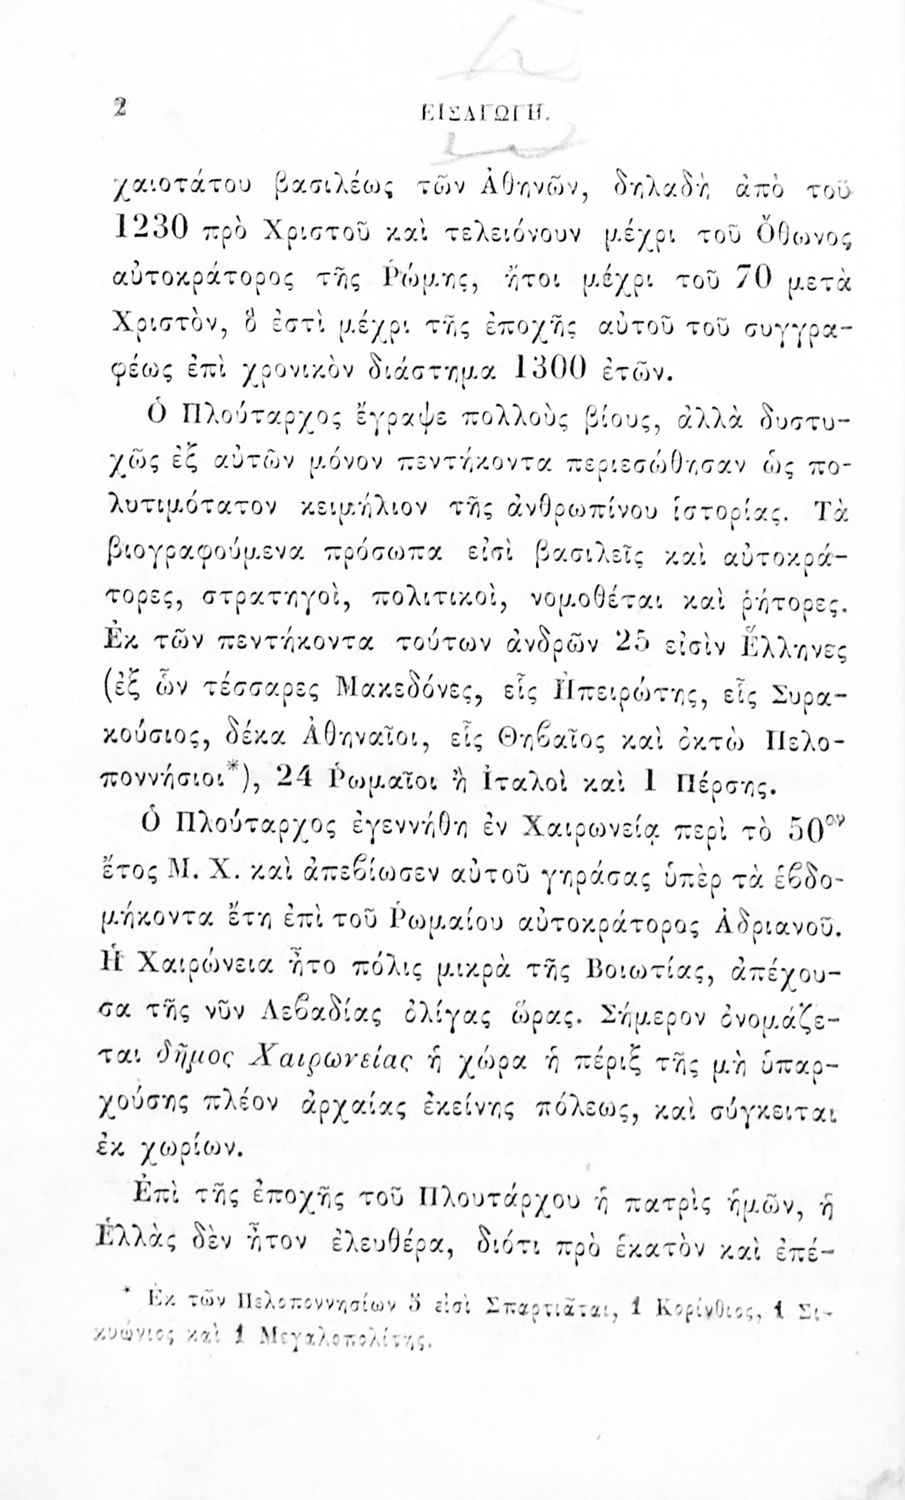 2
ΕΙΣΑΓΩΓΗ.
χαιοτάτου βασιλέως τῶν Ἀθηνῶν, δηλαδὴ ἀπὸ τοῦ
1230 πρὸ Χριστοῦ καὶ τελειόνουν μέχρι τοῦ Ὄθωνος
αὐτοκράτορος τῆς Ῥώμης, ἤτοι μέχρι τοῦ 70 μετὰ
Χριστὸν, ὅ ἐστὶ μέχρι τῆς ἐποχῆς αὐτοῦ τοῦ συγγρα-
φέως ἐπὶ χρονικὸν διάστημα 1300 ἐτῶν.
Ὁ Πλούταρχος ἔγραψε πολλοὺς βίους, ἀλλὰ δυστυ-
χῶς ἐξ αὐτῶν μόνον πεντήκοντα περιεσώθησαν ὡς πο-
λυτιμότατον κειμήλιον τῆς ἀνθρωπίνου ἱστορίας. Τὰ
βιογραφούμενα πρόσωπα εἰσὶ βασιλεῖς καὶ αὐτοκρά-
τορες, στρατηγοὶ, πολιτικοὶ, νομοθέται καὶ ῥήτορες.
Ἐκ τῶν πεντήκοντα τούτων ἀνδρῶν 25 εἰσὶν Ἕλληνες
(ἐξ ὧν τέσσαρες Μακεδόνες, εἷς Ἠπειρώτης, εἷς Συρα-
κούσιος, δέκα Ἀθηναῖοι, εἷς Θηϐαῖος καὶ ὀκτὼ Πελο-
ποννήσιοι*), 24 Ῥωμαῖοι ἢ Ἰταλοὶ καὶ 1 Πέρσης.
Ὁ Πλούταρχος ἐγεννήθη ἐν Χαιρωνείᾳ περὶ τὸ 50ὸν
ἔτος Μ. Χ. καὶ ἀπεϐίωσεν αὐτοῦ γηράσας ὑπὲρ τὰ ἑϐδο-
μήκοντα ἔτη ἐπὶ τοῦ Ῥωμαίου αὐτοκράτορος Ἀδριανοῦ.
Ἡ Χαιρώνεια ἦτο πόλις μικρὰ τῆς Βοιωτίας, ἀπέχου-
σα τῆς νῦν Λεϐαδίας ὀλίγας ὥρας. Σήμερον ὀνομάζε-
ται δῆμος Χαιρωνείας ἡ χώρα ἡ πέριξ τῆς μὴ ὑπαρ-
χούσης πλέον ἀρχαίας ἐκείνης πόλεως, καὶ σύγκειται
ἐκ χωρίων.
Ἐπὶ τῆς ἐποχῆς τοῦ Πλουτάρχου ἡ πατρὶς ἡμῶν, ἡ
Ἑλλὰς δὲν ἦτον ἐλευθέρα, διότι πρὸ ἑκατὸν καὶ ἐπέ-
* Ἐκ τῶν Πελοποννησίων 5 εἰσὶ Σπαρτιᾶται, 1 Κορίνθιος, 1 Σι-
κυώνιος καὶ 1 Μεγαλοπολίτης.